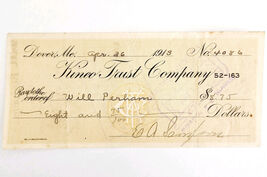 Dover, Me. Apr. 26 1913 No. 4086
Kineo Trust Company 52-163
Pay to the order of Will Perham $8.75
Eight and 75/100 Dollars.
E A